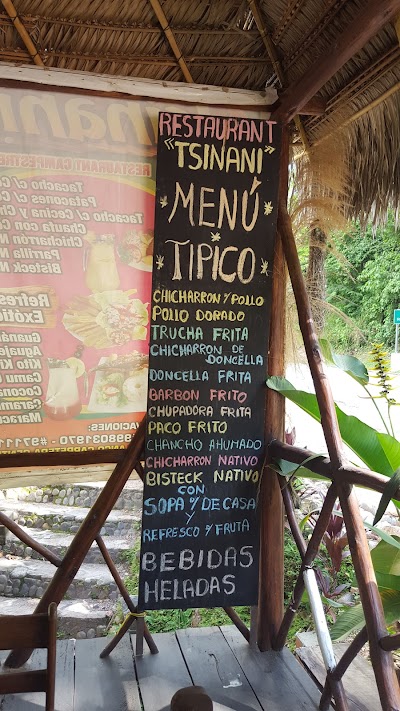 RESTAURANT
"TSINANI"
MENÚ
TIPICO
CHICHARRON Y POLLO
POLLO DORADO
TRUCHA FRITA
CHICHARRON DE
DONCELLA
DONCELLA FRITA
BARBON FRITO
CHUPADORA FRITA
PACO FRITO
CHANCHO AHUMADO
CHICHARRON NATIVO
BISTECK NATIVO
CON
SOPA % DE CASA
Y
REFRESCO % FRUTA
BEBIDAS
HELADAS
RESTAURANT CAMPESTRE
Tacacho c/
Patacones c/
Tacacho c/ Cecina y Ch
Chaufa con C
Chicharrón N
Parrilla N
Bisteck N
Refres
Exótic
Guaná
Aguaj
Kito Ki
Camu
Cocona
Caram
Marac